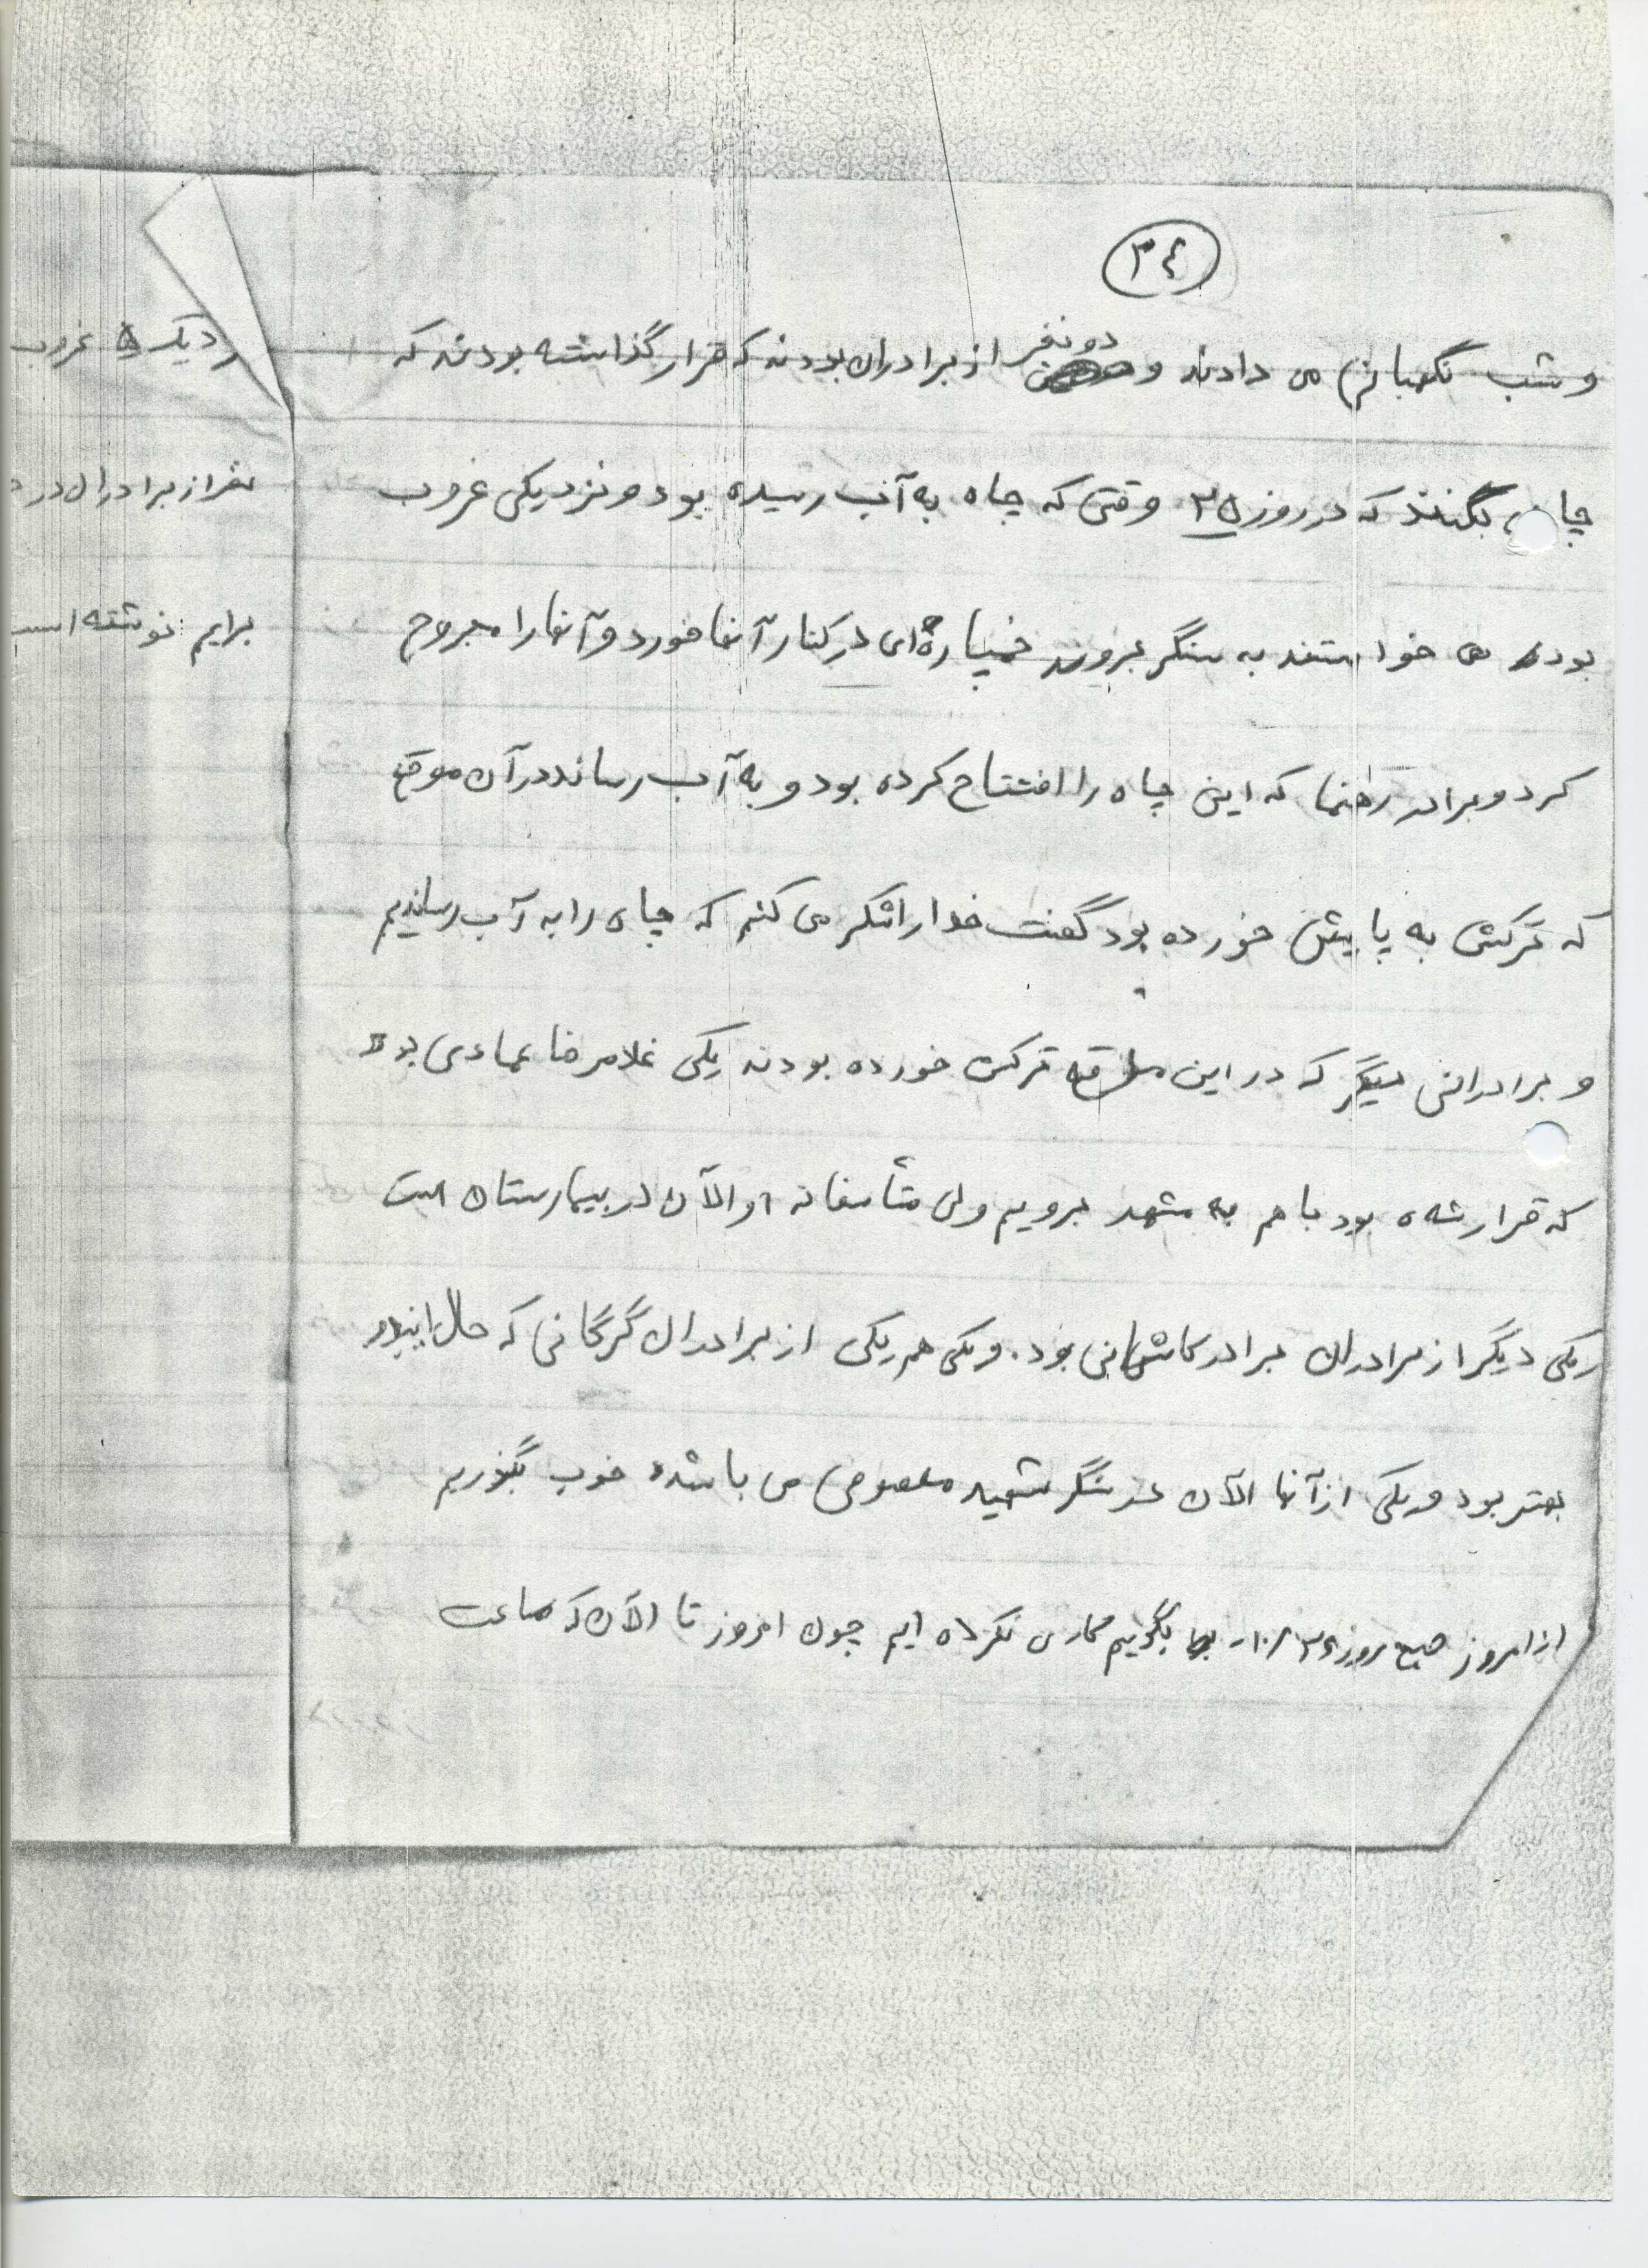 ٣٤
و شب نگهبانی می دادند و دو نفر از برادران بودند که قرار گذاشته بودند که
چاهی بکنند که در روز ٢٥ وقتی که چاه به آب رسیده بود و نزدیکی غروب
بود می خواستند به سنگر بروند خمپاره ای در کنار آنها خورد و آنها را مجروح
کرد و برادر راهنما که این چاه را افتتاح کرده بود و به آب رساند در آن موقع
که ترکش به پایش خورده بود گفت خدا را شکر می کنم که چاه را به آب رساندیم
و برادرانی دیگر که در این ترکش خورده بودند یکی غلامرضا عمادی بود
که قرار شده بود با هم به مشهد برویم ولی متأسفانه او الآن در بیمارستان است
یکی دیگر از برادران برادر کاشانی بود. و یکی هم یکی از برادران گرگانی که حال
بهتر بود و یکی از آنها الآن در سنگر شهید معصومی می باشد خوب بگذریم
از امروز صبح روز بگوییم کاری نکرده ایم چون امروز تا الآن که ساعت
غروب
نفر از برادران در
برایم نوشته